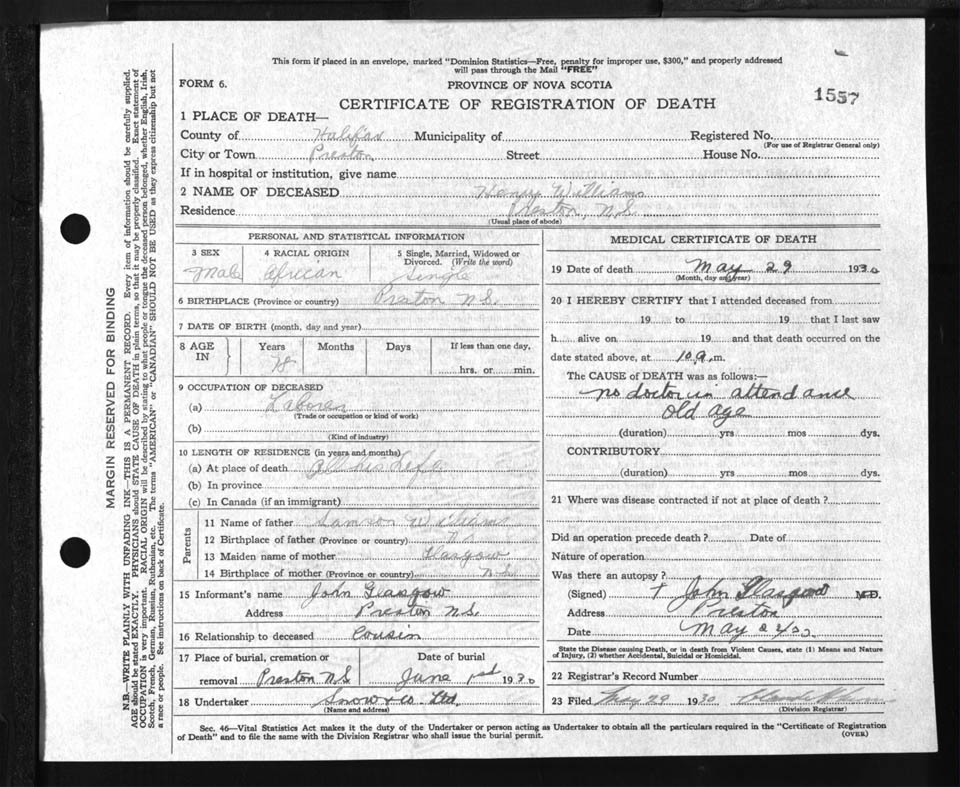 This form if placed in an envelope, marked "Dominion Statistics—Free, penalty for improper use, $300," and properly addressed
will pass through the Mail "FREE"
FORM 6.
PROVINCE OF NOVA SCOTIA
1557
CERTIFICATE OF REGISTRATION OF DEATH
1 PLACE OF DEATH—
County of Halifax Municipality of Registered No.
(For use of Registrar General only)
City or Town Preston Street House No.
If in hospital or institution, give name
2 NAME OF DECEASED Henry Williams
Residence Preston, N.S.
(Usual place of abode)
PERSONAL AND STATISTICAL INFORMATION
3 SEX 4 RACIAL ORIGIN 5 Single, Married, Widowed or
Divorced. (Write the word)
Male African Single
6 BIRTHPLACE (Province or country) Preston N.S.
7 DATE OF BIRTH (month, day and year)
8 AGE IN Years Months Days If less than one day,
78 hrs. or min.
9 OCCUPATION OF DECEASED
(a) Laborer
(Trade or occupation or kind of work)
(b)
(Kind of industry)
10 LENGTH OF RESIDENCE (in years and months)
(a) At place of death All his Life
(b) In province
(c) In Canada (if an immigrant)
Parents
11 Name of father Samson Williams
12 Birthplace of father (Province or country) N.S.
13 Maiden name of mother Glasgow
14 Birthplace of mother (Province or country) N.S.
15 Informant's name John Glasgow
Address Preston N.S.
16 Relationship to deceased Cousin
17 Place of burial, cremation or Date of burial
removal Preston N.S. June 1st 1930
18 Undertaker Snow & Co Ltd
(Name and address)
MEDICAL CERTIFICATE OF DEATH
19 Date of death May 29 1930
(Month, day and year)
20 I HEREBY CERTIFY that I attended deceased from
19 to 19 that I last saw
h alive on 19 and that death occurred on the
date stated above, at 10 a.m.
The CAUSE of DEATH was as follows:—
no doctor in attendance
old age
(duration) yrs mos dys.
CONTRIBUTORY
(duration) yrs mos dys.
21 Where was disease contracted if not at place of death?
Did an operation precede death? Date of
Nature of operation
Was there an autopsy?
(Signed) John Glasgow M.D.
Address Preston
Date May
State the Disease causing Death, or in death from Violent Causes, state (1) Means and Nature
of Injury, (2) whether Accidental, Suicidal or Homicidal.
22 Registrar's Record Number
23 Filed May 29 1930
(Division Registrar)
Sec. 46—Vital Statistics Act makes it the duty of the Undertaker or person acting as Undertaker to obtain all the particulars required in the "Certificate of Registration
of Death" and to file the same with the Division Registrar who shall issue the burial permit.
(OVER)
MARGIN RESERVED FOR BINDING
N.B.—WRITE PLAINLY WITH UNFADING INK—THIS IS A PERMANENT RECORD. Every item of information should be carefully supplied.
AGE should be stated EXACTLY. PHYSICIANS should STATE CAUSE OF DEATH in plain terms, so that it may be properly classified. Exact statement of
OCCUPATION is very important. RACIAL ORIGIN will be described by stating to what people or tongue the deceased person belonged, whether English, Irish,
Scotch, French, German, Russian, Ruthenian, etc. The terms "AMERICAN" or "CANADIAN" SHOULD NOT BE USED as they express citizenship but not
a race or people. See instructions on back of Certificate.